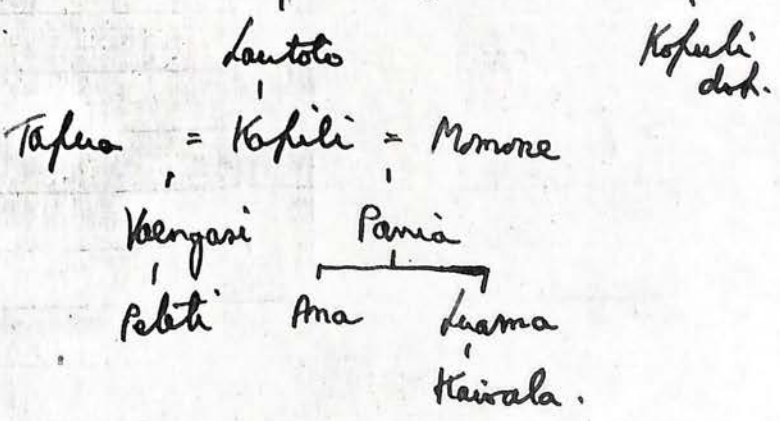 Lautolo Kopuli
dsp.
Tapua = Kapili = Momone
Vaengasi Pania
Peleti Ana Luama
Kaivala.